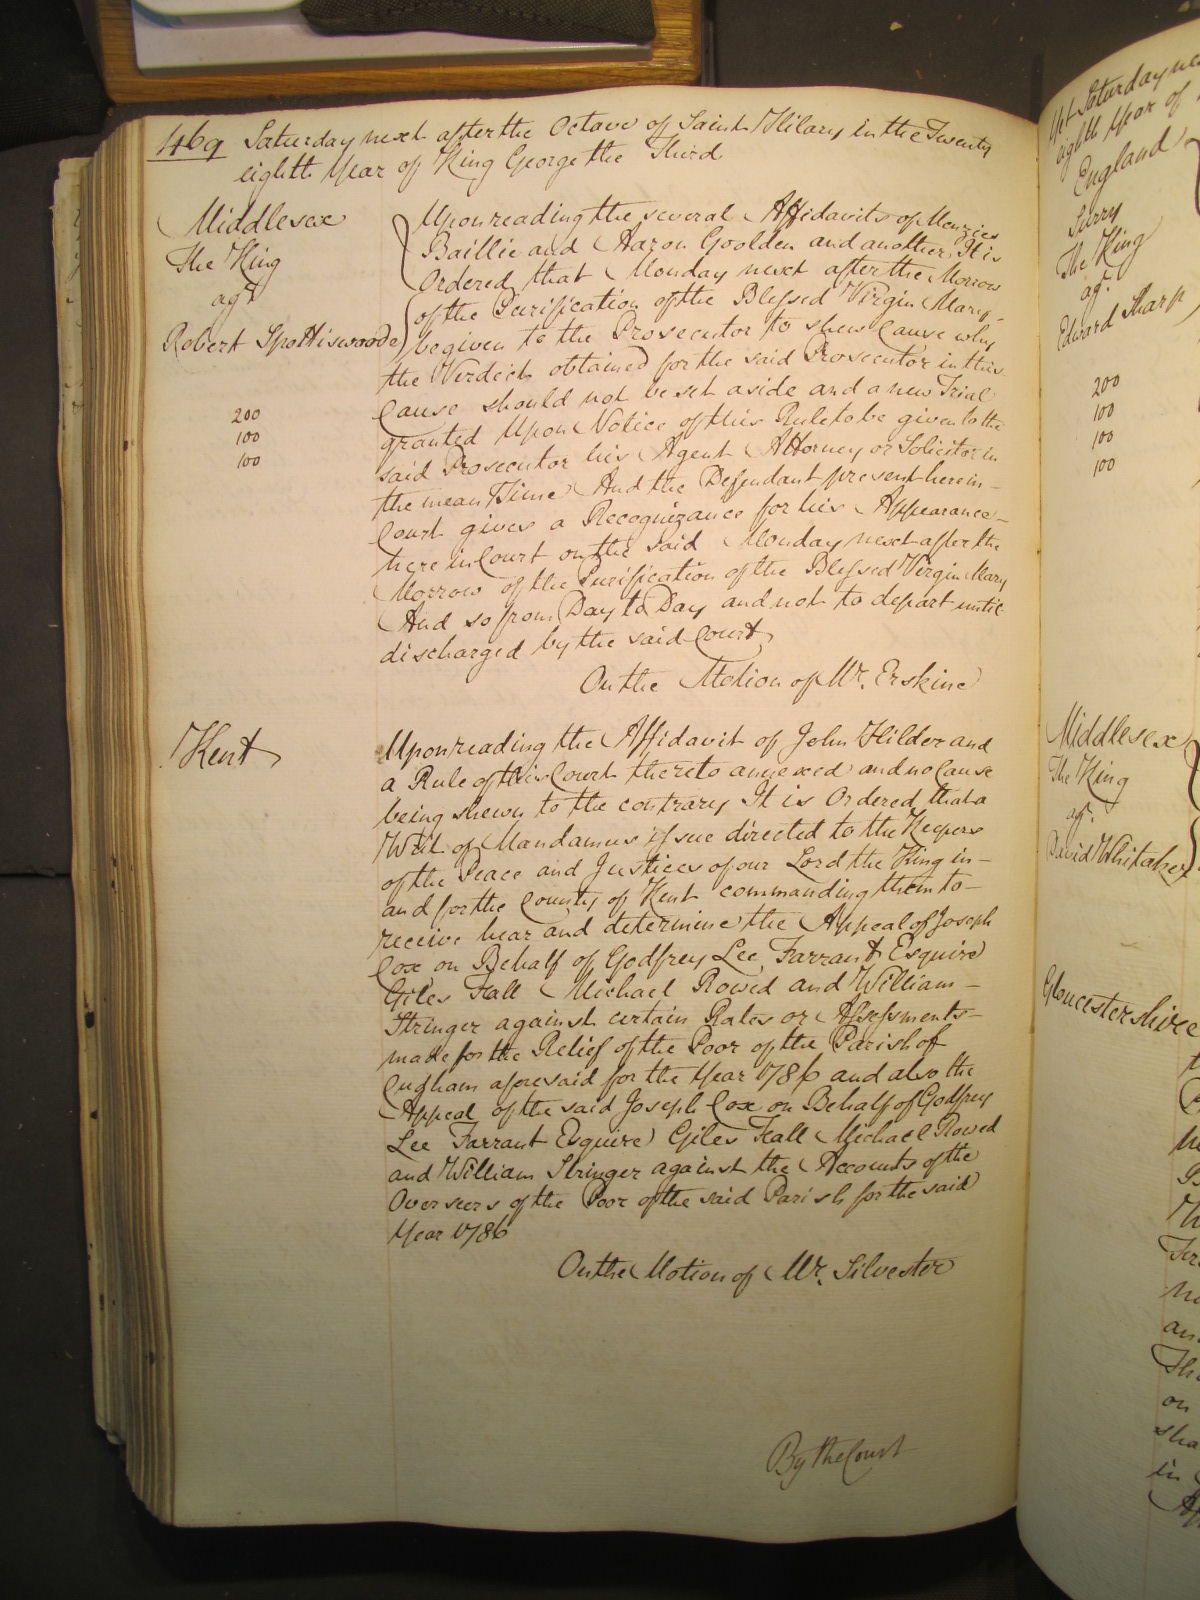 469 Saturday next after the Octave of Saint Hilary in the Twenty
eighth Year of King George the Third
Middlesex
The King
agt
Robert Spottiswoode
200
100
100
Upon reading the several Affidavits of Menzies
Baillie and Aaron Goolden and another It is
Ordered that Monday next after the Morrow
of the Purification of the Blessed Virgin Mary
be given to the Prosecutor to shew Cause why
the Verdict obtained for the said Prosecutor in this
Cause should not be set aside and a new Trial
granted Upon Notice of this Rule to be given to the
said Prosecutor his Agent Attorney or Solicitor in
the mean Time And the Defendant present here in
Court gives a Recognizance for his Appearance
here in Court on the said Monday next after the
Morrow of the Purification of the Blessed Virgin Mary
And so from Day to Day and not to depart until
discharged by the said Court
On the Motion of Mr. Erskine
Kent
Upon reading the Affidavit of John Hilder and
a Rule of this Court thereto annexed and no Cause
being shewn to the contrary It is Ordered that a
Writ of Mandamus issue directed to the Keepers
of the Peace and Justices of our Lord the King in
and for the County of Kent commanding them to
receive hear and determine the Appeal of Joseph
Cox on Behalf of Godfrey Lee Farrant Esquire
Giles Fall Michael Rowed and William
Stringer against certain Rates or Assessments
made for the Relief of the Poor of the Parish of
Lugham aforesaid for the Year 1786 and also the
Appeal of the said Joseph Cox on Behalf of Godfrey
Lee Farrant Esquire Giles Fall Michael Rowed
and William Stringer against the Accounts of the
Overseers of the Poor of the said Parish for the said
Year 1786
On the Motion of Mr. Silvester
By the Court
Yet Saturday ne
eighth Year of
England
Surry
The King
agt.
Edward Sharp
200
100
100
100
Middlesex
The King
agt.
David Whitaker
Gloucestershire